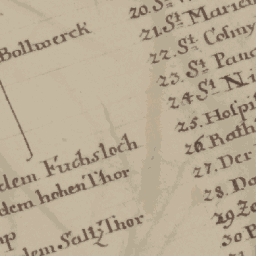 Bollwerck
dem Fuchsloch
dem hohen Thor
dem Saltz Thor
20. St.
21. St. Marien
22. St. Cosmy
23. St.
24. St. Ni
25. Hospi
26. Rath
27. Der
28. Do
29
30
31